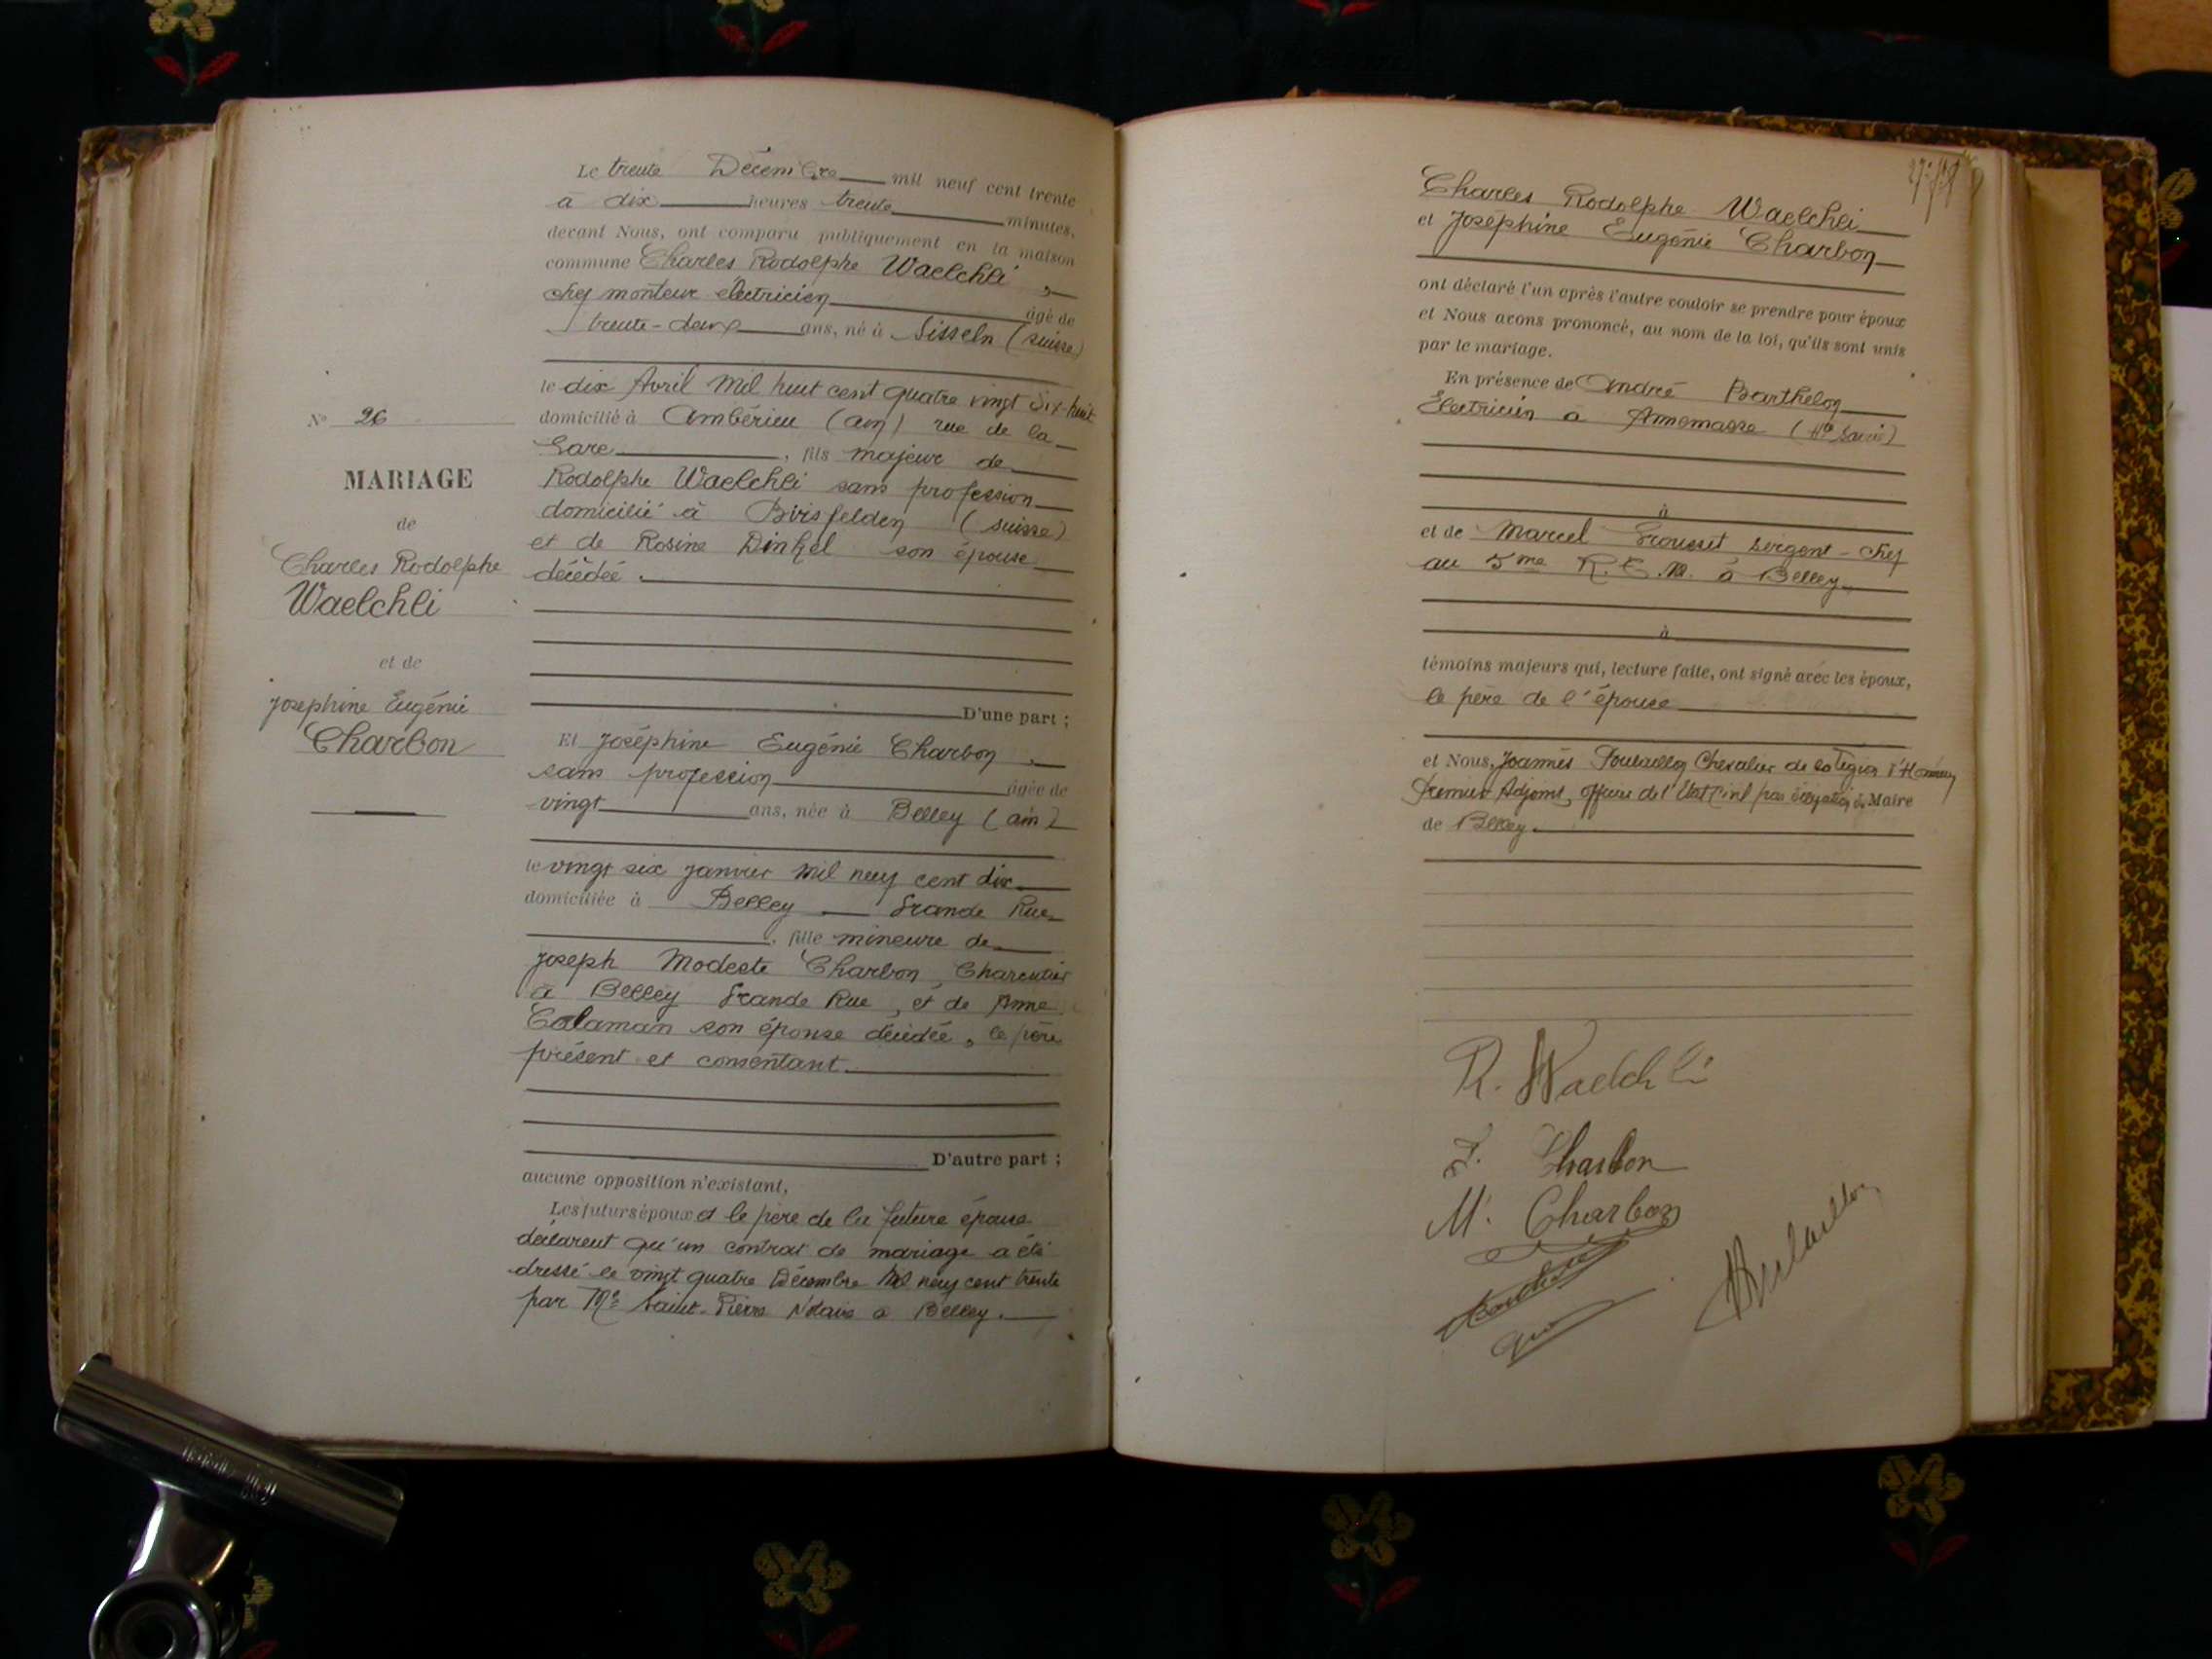 Le trente Décembre mil neuf cent trente
à dix heures trente minutes,
devant Nous, ont comparu publiquement en la maison
commune Charles Rodolphe Waelchli,
chef monteur electricien âgé de
trente-deux ans, né à Sisseln (suisse)
le dix Avril mil huit cent quatre vingt dix-huit
domicilié à Ambérieu (ain) rue de la
Gare, fils majeur de
Rodolphe Waelchli sans profession
domicilié à Birsfelden (suisse)
et de Rosine Dinkel son épouse
décédée.
D'une part ;
Et Joséphine Eugénie Charbon
sans profession âgée de
vingt ans, née à Belley (ain)
le vingt six janvier mil neuf cent dix
domiciliée à Belley Grande Rue
, fille mineure de
Joseph Modeste Charbon, Charcutier
à Belley Grande Rue, et de Anne
Calaman son épouse décédée, le père
présent et consentant.
D'autre part ;
aucune opposition n'existant,
Les futurs époux et le père de la future épouse
déclarent qu'un contrat de mariage a été
dressé le vingt quatre Décembre mil neuf cent trente
par Me Saint-Pierre Notaire à Belley.
No 26
MARIAGE
de
Charles Rodolphe
Waelchli
et de
Josephine Eugénie
Charbon
Charles Rodolphe Waelchli
et Joséphine Eugénie Charbon
ont déclaré l'un après l'autre vouloir se prendre pour époux
et Nous avons prononcé, au nom de la loi, qu'ils sont unis
par le mariage.
En présence de André Barthelon
Electricien à Annemasse (Hte Savoie)
à
et de Marcel Grousset sergent-chef
au 5me R.T.M. à Belley
à
témoins majeurs qui, lecture faite, ont signé avec les époux,
le père de l'épouse
et Nous, Joannès Chevalier de la Légion d'Honneur
Premier Adjoint, officier de l'Etat Civil par délégation du Maire
de Belley.
R. Waelchli
J. Charbon
M. Charbon